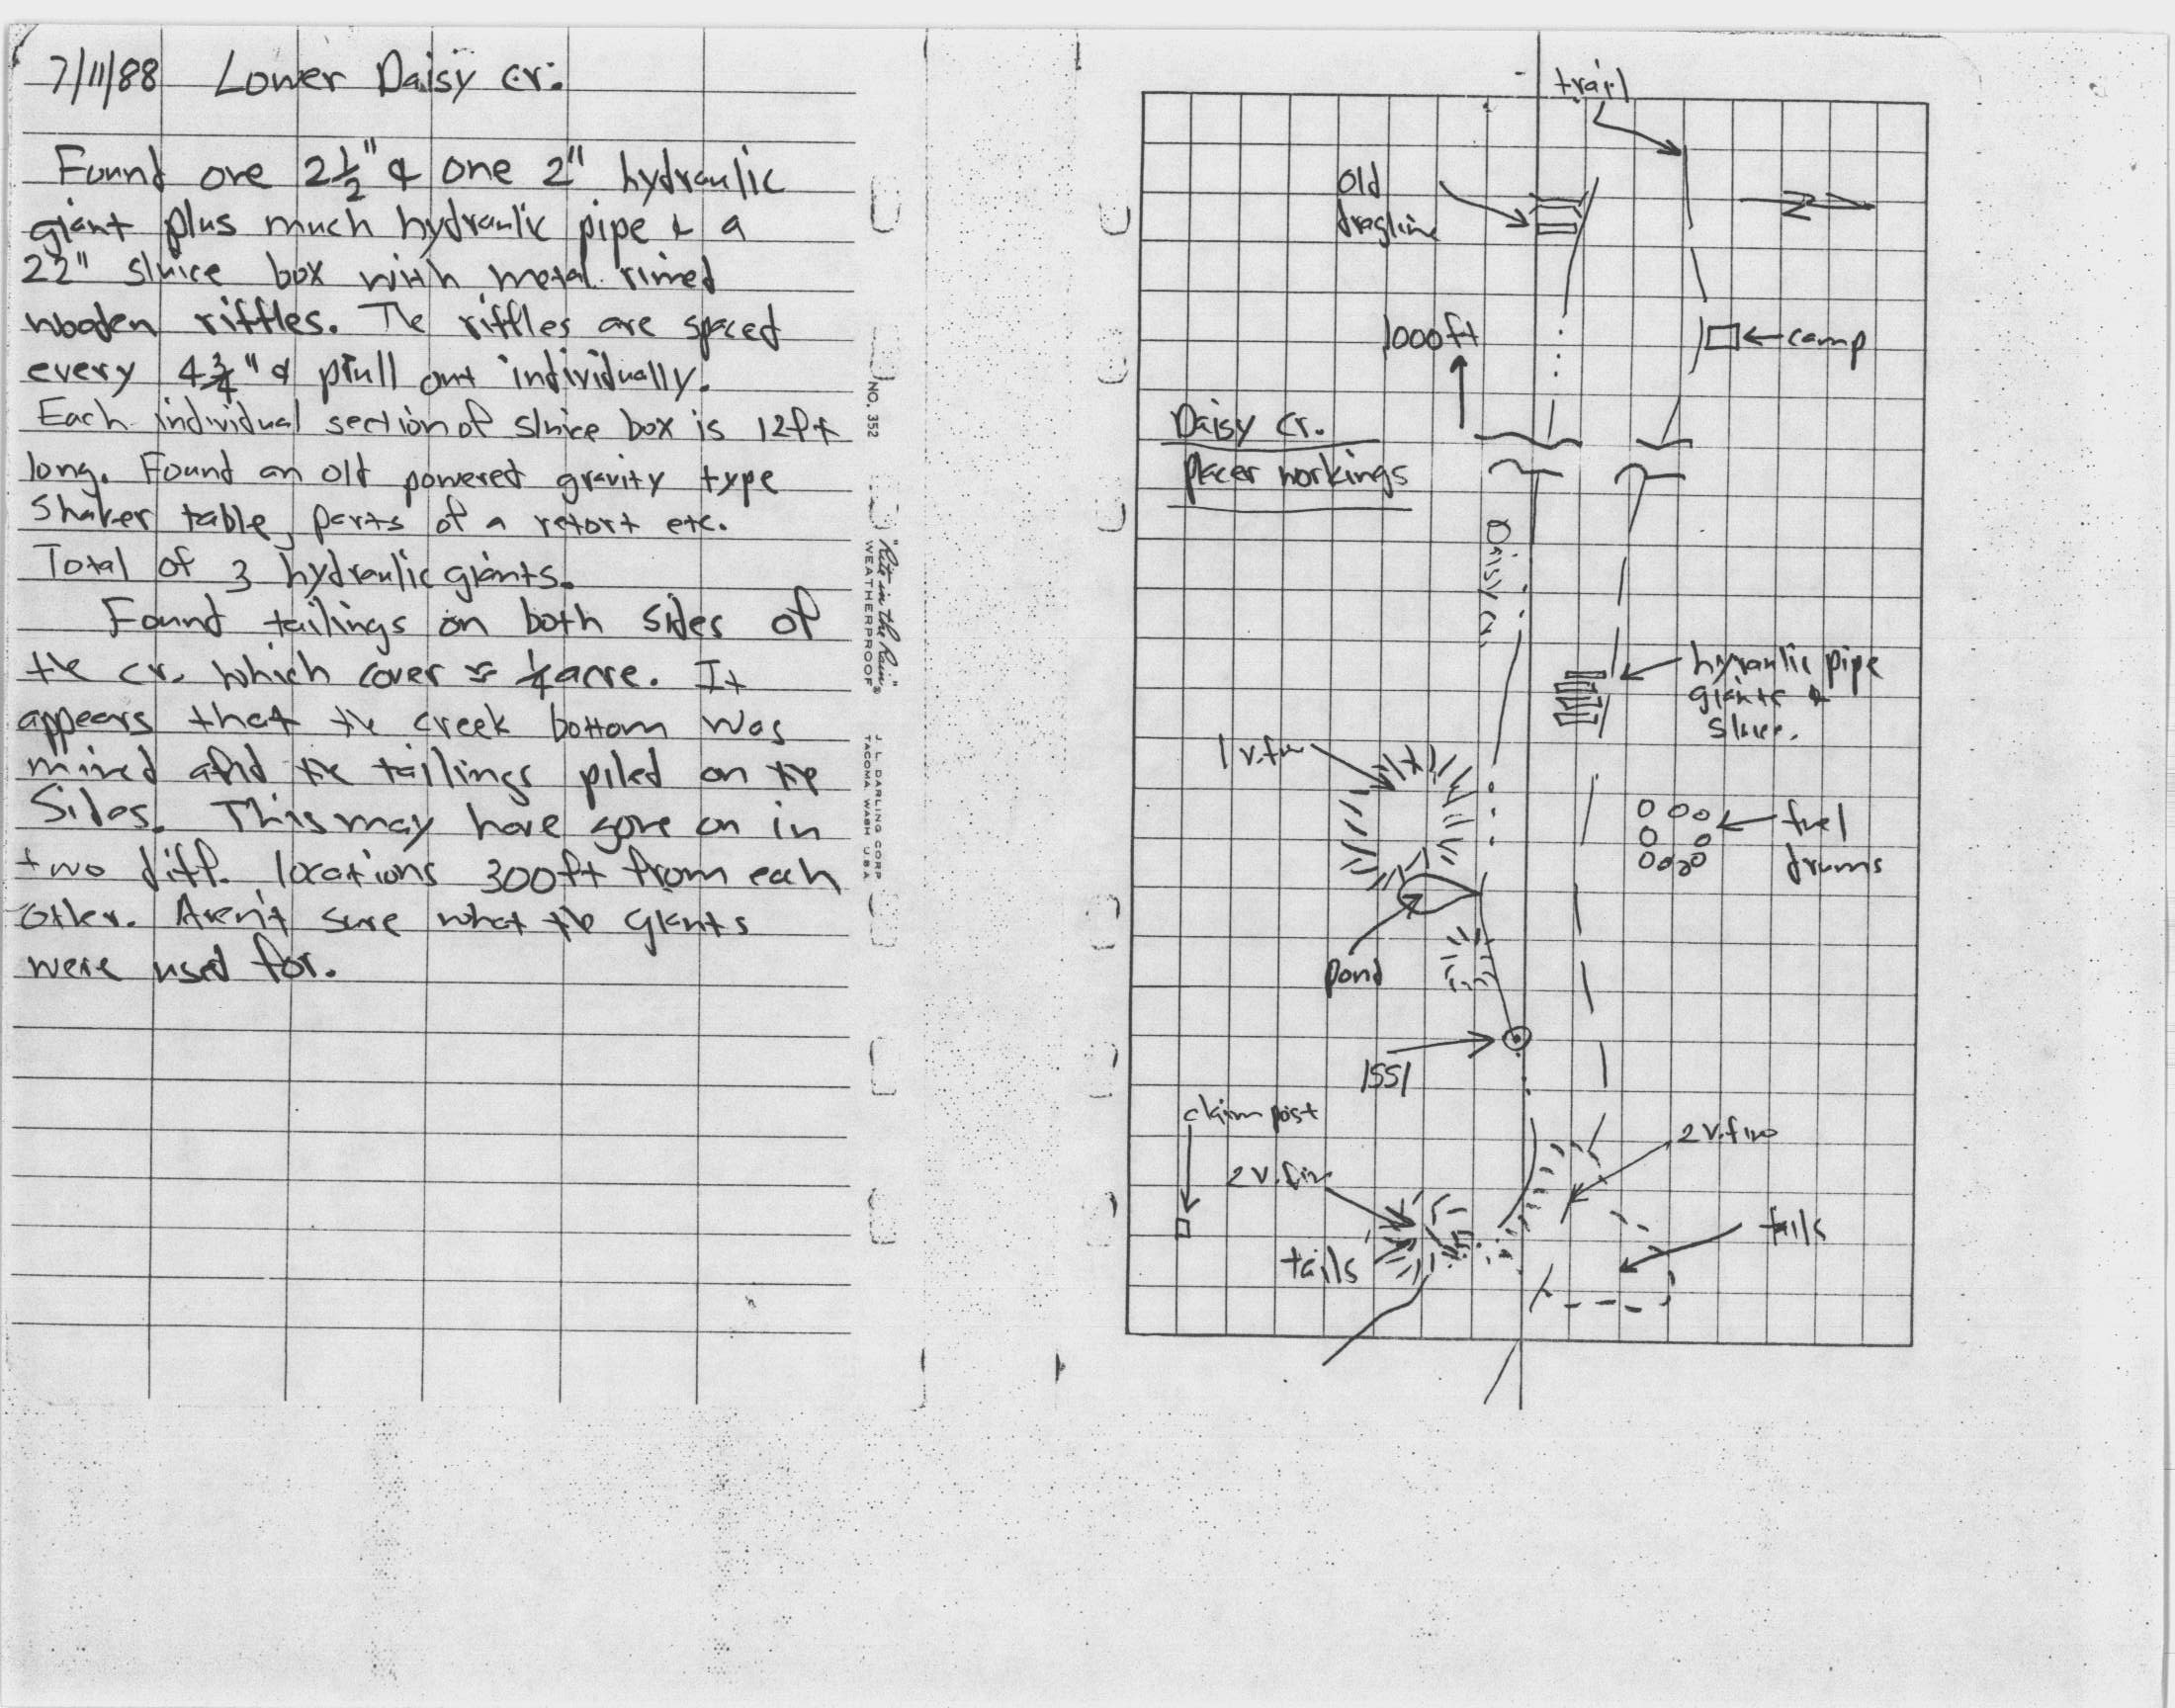 7/11/88 Lower Daisy cr.
Found one 2½" & one 2" hydraulic
giant plus much hydraulic pipe & a
22" sluice box with metal rimed
wooden riffles. The riffles are spaced
every 4¾" & pull out individually.
Each individual section of sluice box is 12ft
long. Found an old powered gravity type
Shaker table, parts of a retort etc.
Total of 3 hydraulic giants.
Found tailings on both sides of
the cr. which cover ≈ ¼ acre. It
appears that the creek bottom was
mined and the tailings piled on the
Sides. This may have gone on in
two diff. locations 300ft from each
other. Aren't sure what the giants
were used for.
NO. 352
"Rite in the Rain"
WEATHERPROOF
J. L. DARLING CORP
TACOMA WASH U.S.A.
trail
old
dragline
N
1000ft
camp
Daisy Cr.
placer workings
Daisy Cr
hyraulic pipe
giants &
sluice.
1 v.fine
fuel
drums
pond
1551
claim post
2 v.fine
2 v.fine
tails
tails